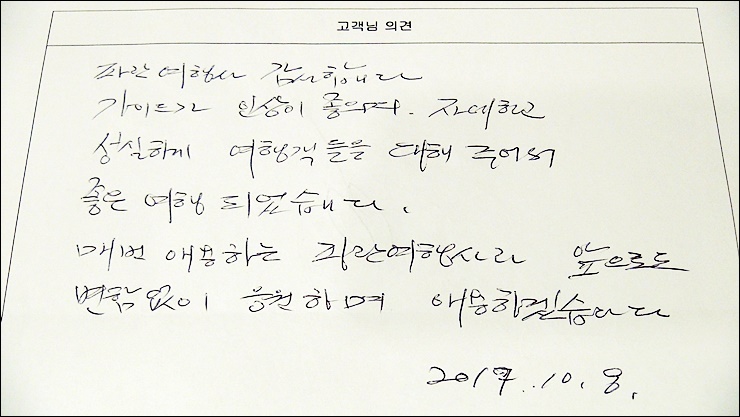 고객님 의견
파란여행사 감사합니다
가이드가 인상이 좋으며. 자애하고
성실하게 여행객들을 대해 주어서
좋은 여행 되었습니다.
매번 애용하는 파란여행사라 앞으로도
변함없이 응원하며 애용하겠습니다
2017. 10. 8.